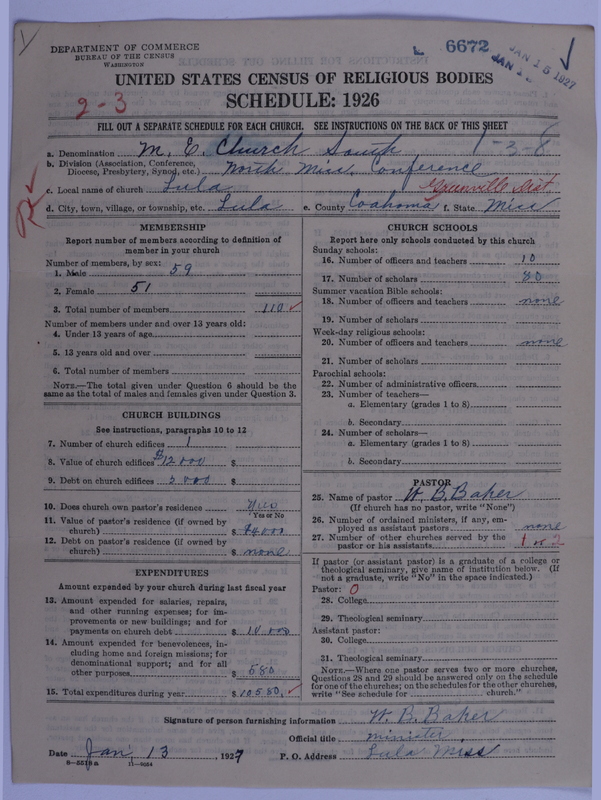 DEPARTMENT OF COMMERCE
BUREAU OF THE CENSUS
WASHINGTON
6672
JAN 15 1927
UNITED STATES CENSUS OF RELIGIOUS BODIES
SCHEDULE: 1926
2-3
FILL OUT A SEPARATE SCHEDULE FOR EACH CHURCH. SEE INSTRUCTIONS ON THE BACK OF THIS SHEET
1-3-8
a. Denomination M. E. Church South
b. Division (Association, Conference, Diocese, Presbytery, Synod, etc.) North Miss. Conference
Greenville Dist
c. Local name of church Lula
d. City, town, village, or township, etc. Lula e. County Coahoma f. State Miss
MEMBERSHIP
Report number of members according to definition of member in your church
Number of members, by sex:
1. Male 59
2. Female 51
3. Total number of members 110
Number of members under and over 13 years old:
4. Under 13 years of age
5. 13 years old and over
6. Total number of members
NOTE.—The total given under Question 6 should be the same as the total of males and females given under Question 3.
CHURCH BUILDINGS
See instructions, paragraphs 10 to 12
7. Number of church edifices 1
8. Value of church edifices $12000 $
9. Debt on church edifices 2.000 $
10. Does church own pastor's residence
Yes or No
11. Value of pastor's residence (if owned by church) $4000
12. Debt on pastor's residence (if owned by church) $ none
EXPENDITURES
Amount expended by your church during last fiscal year
13. Amount expended for salaries, repairs, and other running expenses; for improvements or new buildings; and for payments on church debt $ 10 000
14. Amount expended for benevolences, including home and foreign missions; for denominational support; and for all other purposes $ 580
15. Total expenditures during year $ 10580.
CHURCH SCHOOLS
Report here only schools conducted by this church
Sunday schools:
16. Number of officers and teachers 10
17. Number of scholars 80
Summer vacation Bible schools:
18. Number of officers and teachers none
19. Number of scholars
Week-day religious schools:
20. Number of officers and teachers none
21. Number of scholars
Parochial schools:
22. Number of administrative officers
23. Number of teachers—
a. Elementary (grades 1 to 8)
b. Secondary
24. Number of scholars—
a. Elementary (grades 1 to 8)
b. Secondary
PASTOR
25. Name of pastor W. B. Baker
(If church has no pastor, write "None")
26. Number of ordained ministers, if any, employed as assistant pastors none
27. Number of other churches served by the pastor or his assistants 1 or 2
If pastor (or assistant pastor) is a graduate of a college or theological seminary, give name of institution below. (If not a graduate, write "No" in the space indicated.)
Pastor: 0
28. College
29. Theological seminary
Assistant pastor:
30. College
31. Theological seminary
NOTE.—Where one pastor serves two or more churches, Questions 28 and 29 should be answered only on the schedule for one of the churches; on the schedules for the other churches, write "See schedule for church."
Signature of person furnishing information W. B. Baker
Official title minister
Date Jan 13, 1927 P. O. Address Lula Miss
8-5518a 11-9054